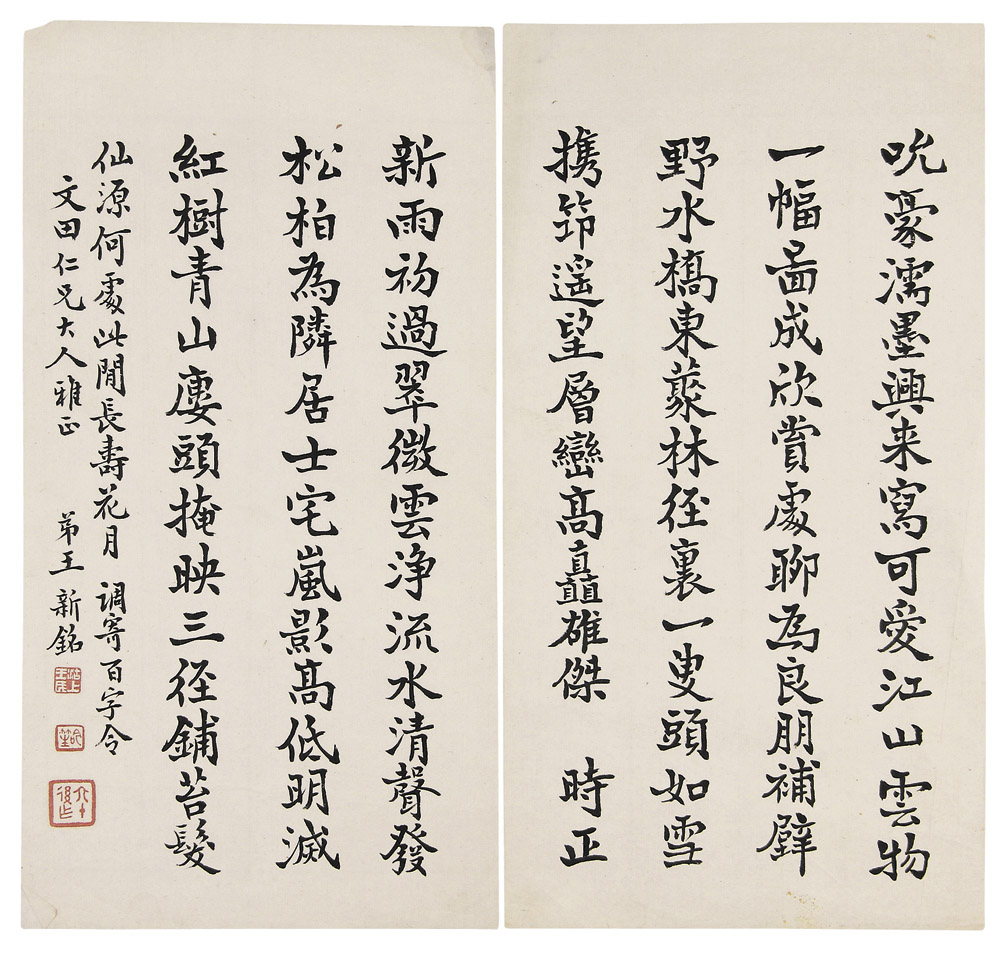 吮豪濡墨興来寫可愛江山雲物
一幅啚成欣賞處聊為良朋補壁
野水橋東蔡林径裏一叟頭如雪
携笻遥望層巒高矗雄傑　時正
新雨初過翠微雲浄流水清聲發
松柏為隣居士宅嵐影高低明滅
紅樹青山廔頭掩映三径鋪苔髮
仙源何處此閒長壽花月　調寄百字令
文田仁兄大人雅正　弟王新銘